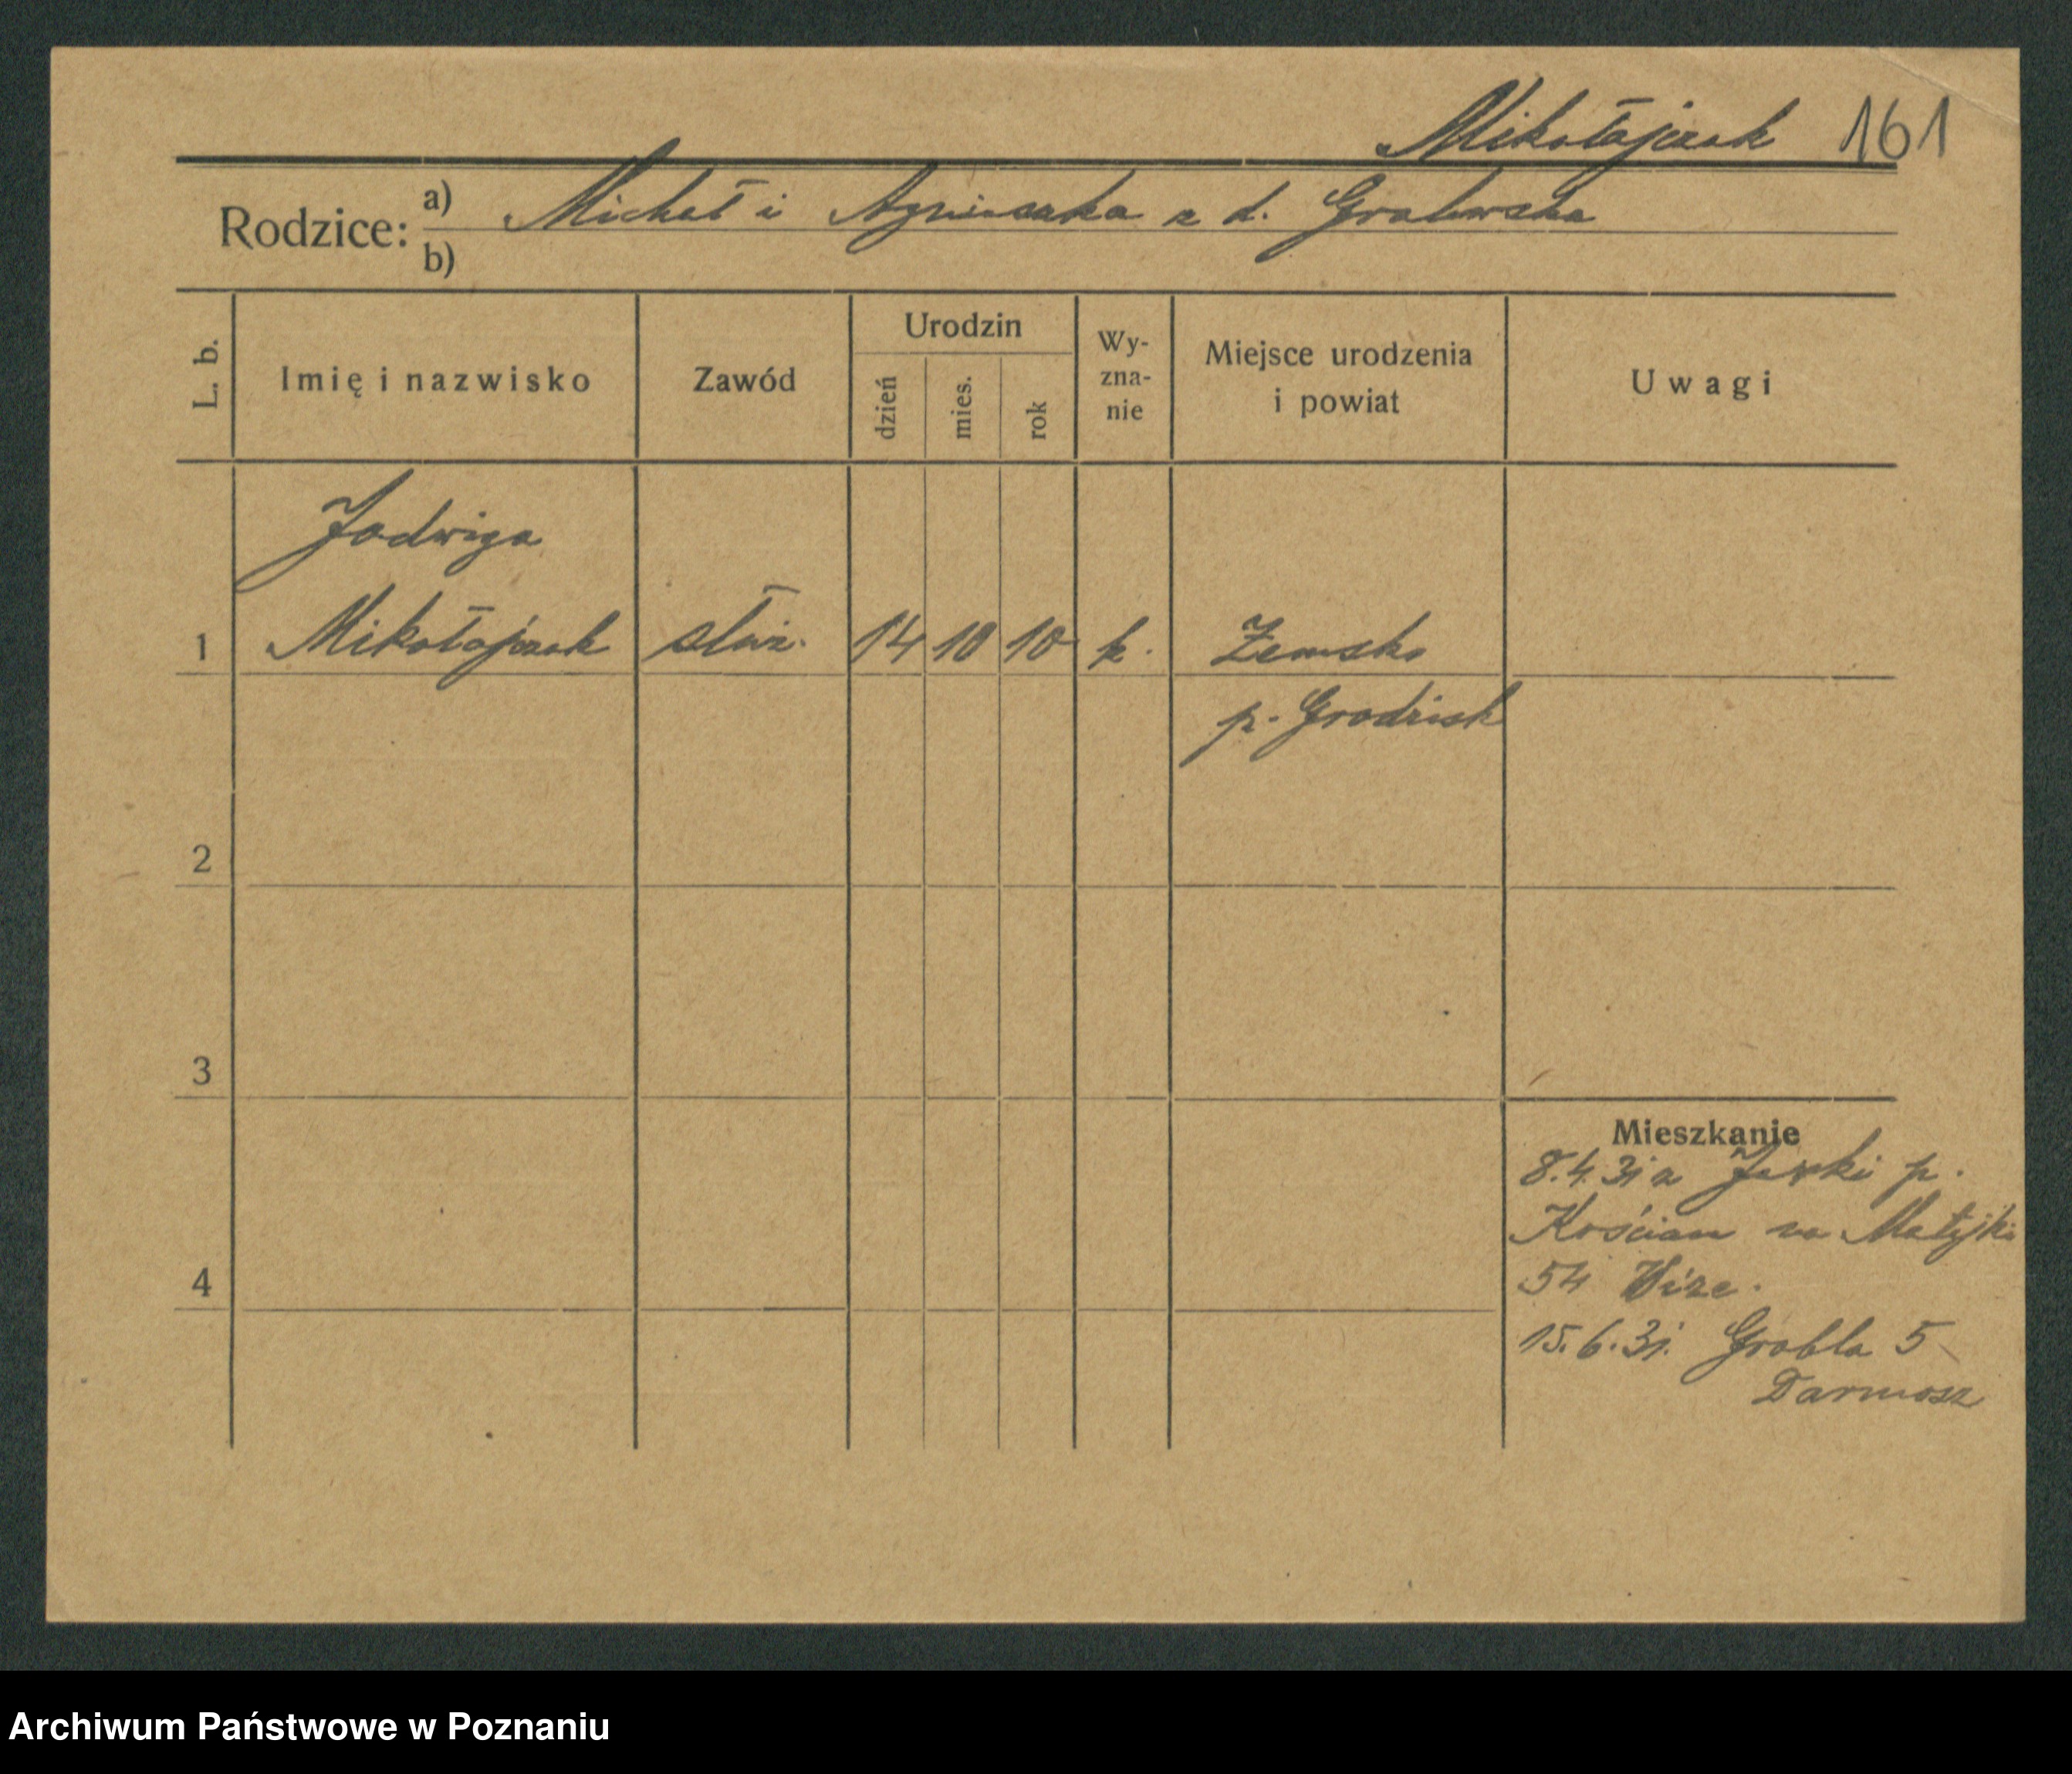 Mikołajczak 161
Rodzice: a) Michał i Agnieszka z d. Gralewska
b)
L. b. Imię i nazwisko Zawód Urodzin dzień mies. rok Wy-zna-nie Miejsce urodzenia i powiat Uwagi
Jadwiga
1 Mikołajczak służ. 14 10 10 k. Zemsko
p. Grodzisk
2
3
Mieszkanie
8.4.31 z p.
Kościan na Matejki
4
54 Wize.
15.6.31. Grobla 5
Darmosz
Archiwum Państwowe w Poznaniu